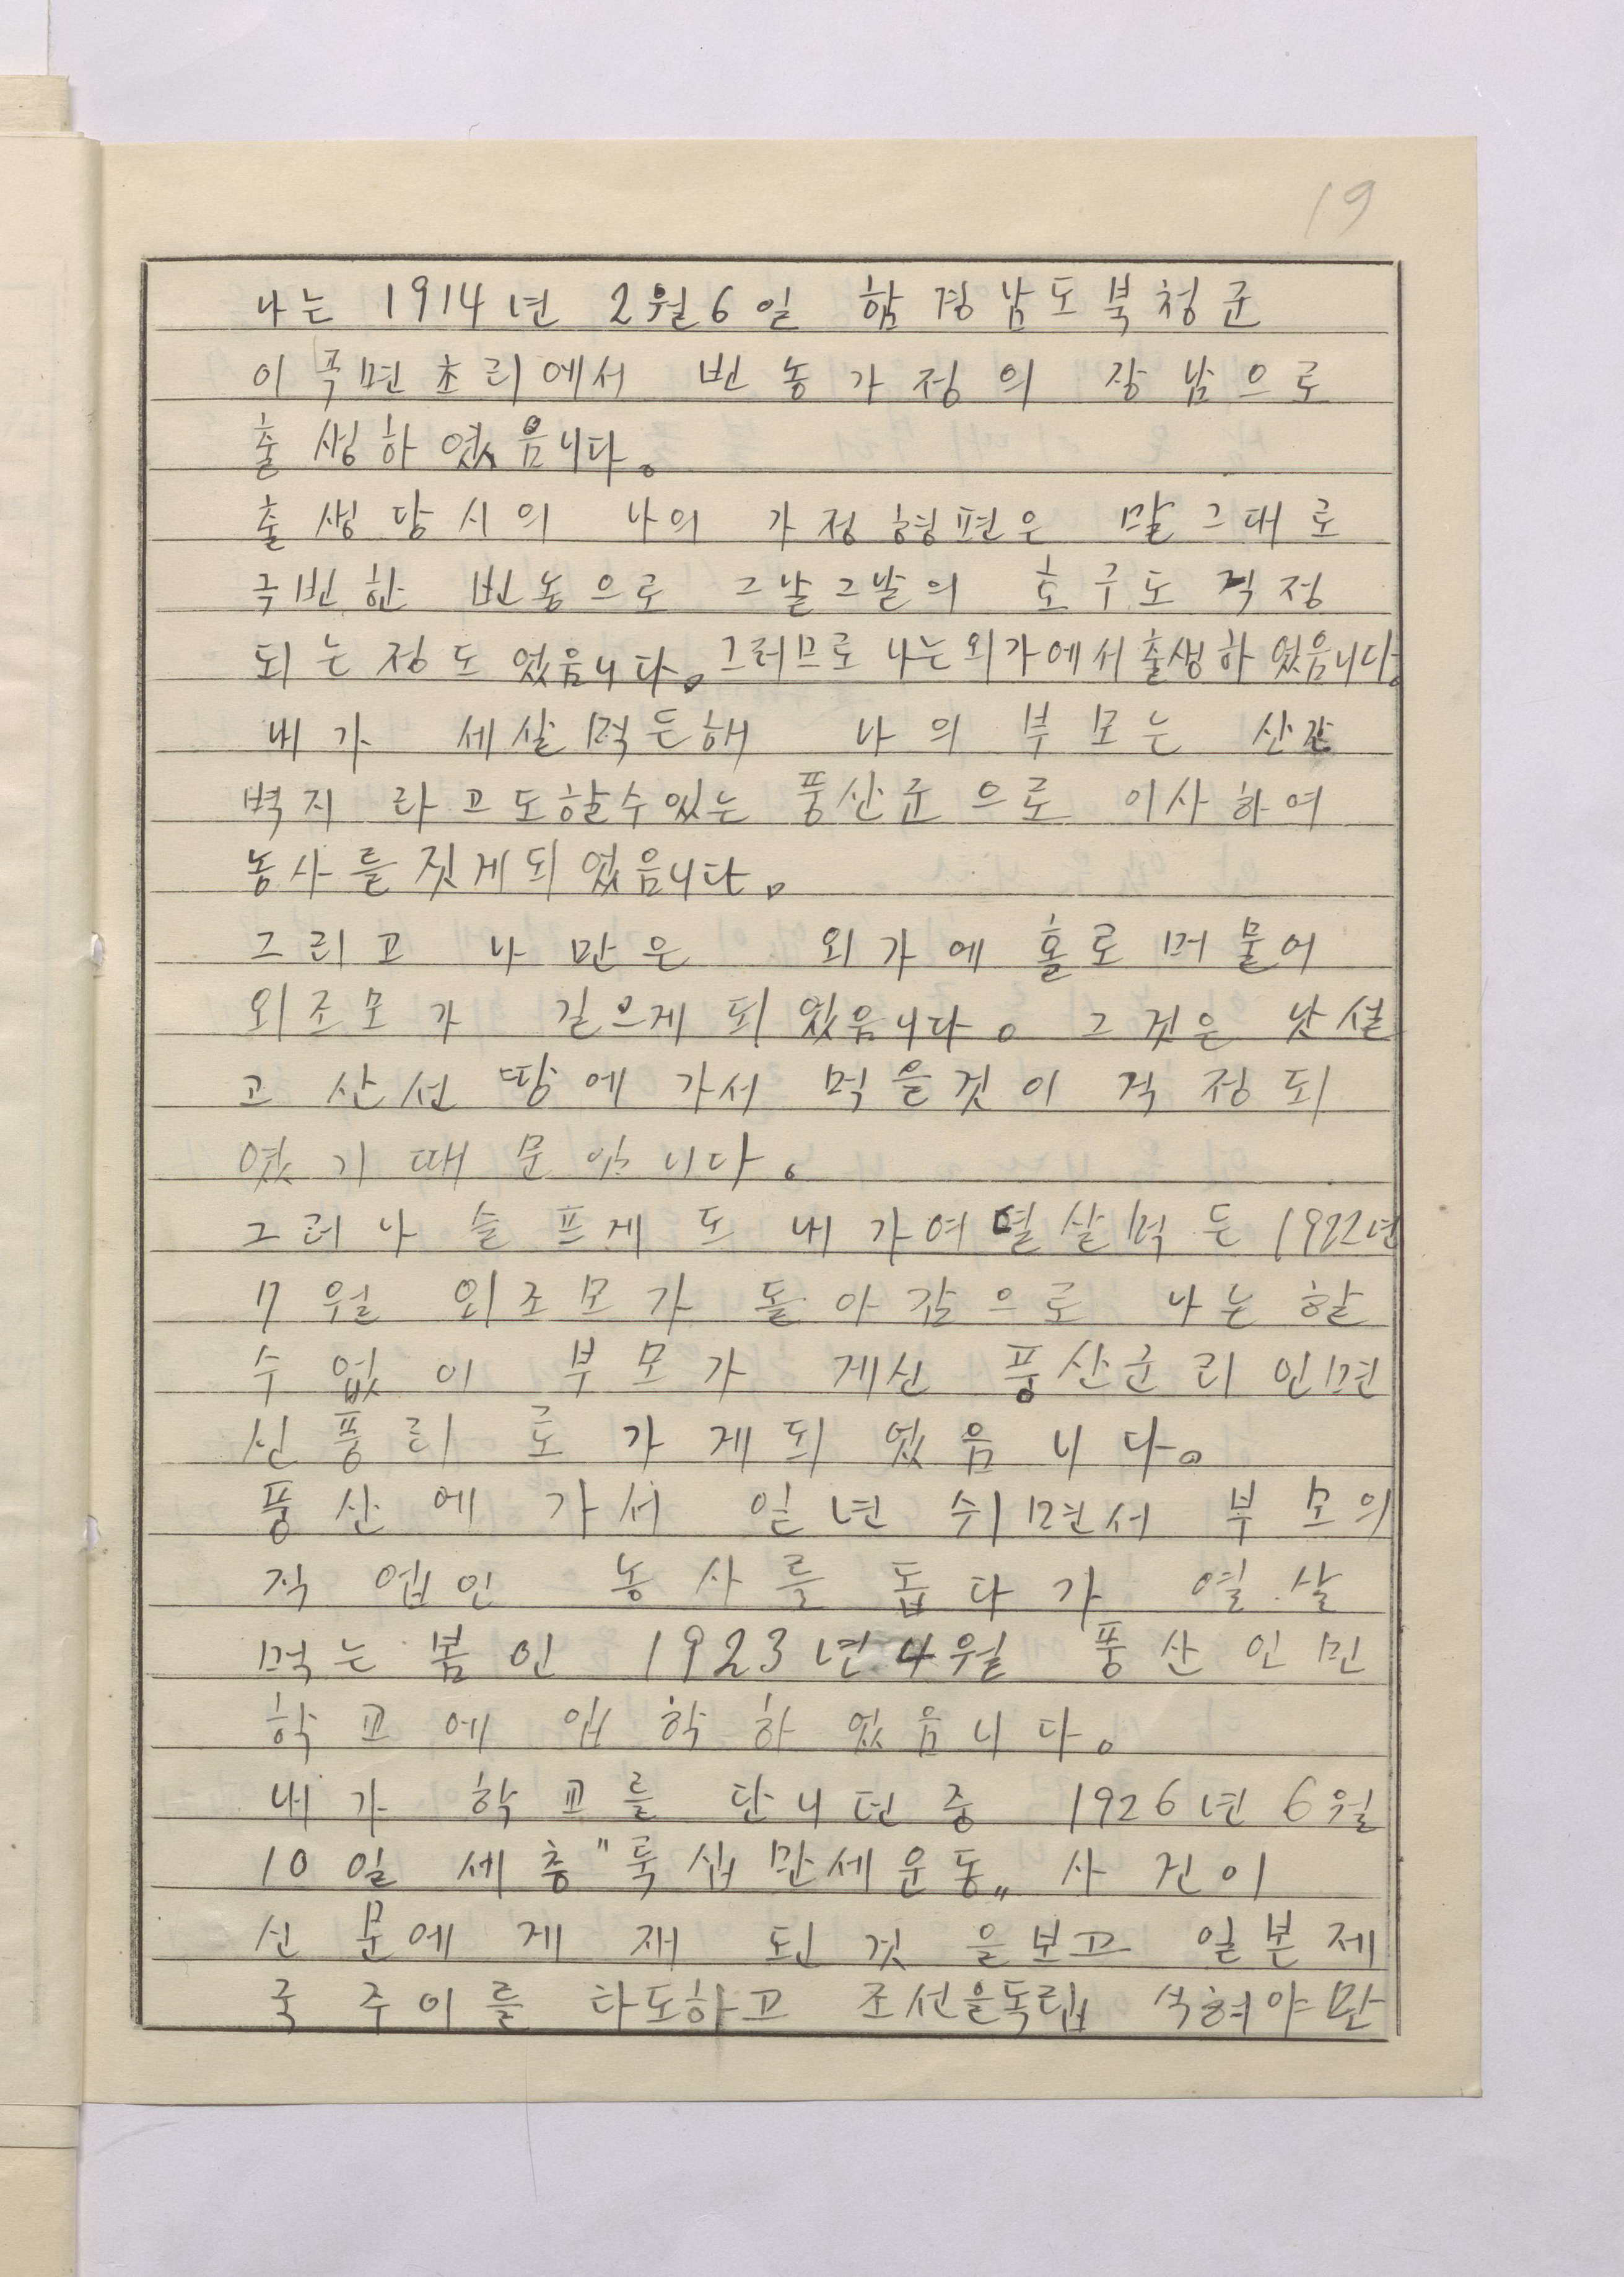 19
나는 1914년 2월6일 함경남도북청군
이곡면초리에서 빈농가정의 장남으로
출생하였읍니다。
출생당시의 나의 가정형편은 말그대로
극빈한 빈농으로 그날그날의 호구도 걱정
되는정도였읍니다。그러므로 나는외가에서출생하였읍니다。
내가 세살먹든해 나의 부모는 산간
벽지 라고도할수있는 풍산군으로 이사하여
농사를짓게되였읍니다。
그리고 나만은 외가에 홀로머물어
외조모가 길으게 되였읍니다。 그것은 낫설
고 산선 땅에가서 먹을것이 걱정되
였기때문입니다。
그러나 슬프게도 내가여덜살먹든 1922년
7월 외조모가 돌아감으로 나는 할
수없이 부모가 게신 풍산군리인면
신풍리로 가게되였읍니다。
풍산에 가서 일년 쉬면서 부모의
직업인 농사를 돕다가 열살
먹는봄인 1923년4월 풍산인민
학교에 입학하였읍니다。
내가 학교를 단니던중 1926년 6월
10일 세층"룩십만세운동„ 사건이
신문에 게재 된것을보고 일본제
국주이를 타도하고 조선을독립 식혀야만